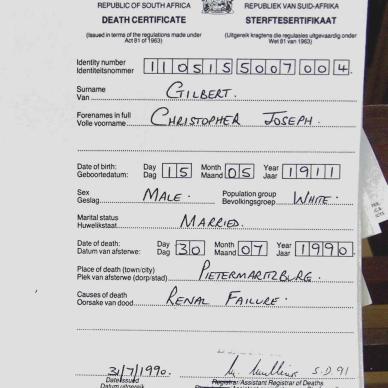 REPUBLIC OF SOUTH AFRICA REPUBLIEK VAN SUID-AFRIKA
DEATH CERTIFICATE STERFTESERTIFIKAAT
(Issued in terms of the regulations made under Act 81 of 1963) (Uitgereik kragtens die regulasies uitgevaardig onder Wet 81 van 1963)
Identity number
Identiteitsnommer 1105155007004
Surname
Van GILBERT.
Forenames in full
Volle voorname CHRISTOPHER JOSEPH.
Date of birth: Day Month Year
Geboortedatum: Dag 15 Maand 05 Jaar 1911
Sex Population group
Geslag MALE. Bevolkingsgroep WHITE.
Marital status
Huwelikstaat MARRIED.
Date of death: Day Month Year
Datum van afsterwe: Dag 30 Maand 07 Jaar 1990.
Place of death (town/city)
Plek van afsterwe (dorp/stad) PIETERMARITZBURG.
Causes of death
Oorsake van dood RENAL FAILURE.
31/7/1990. S.D.91
Date issued Registrar/Assistant Registrar of Deaths
Datum uitgereik